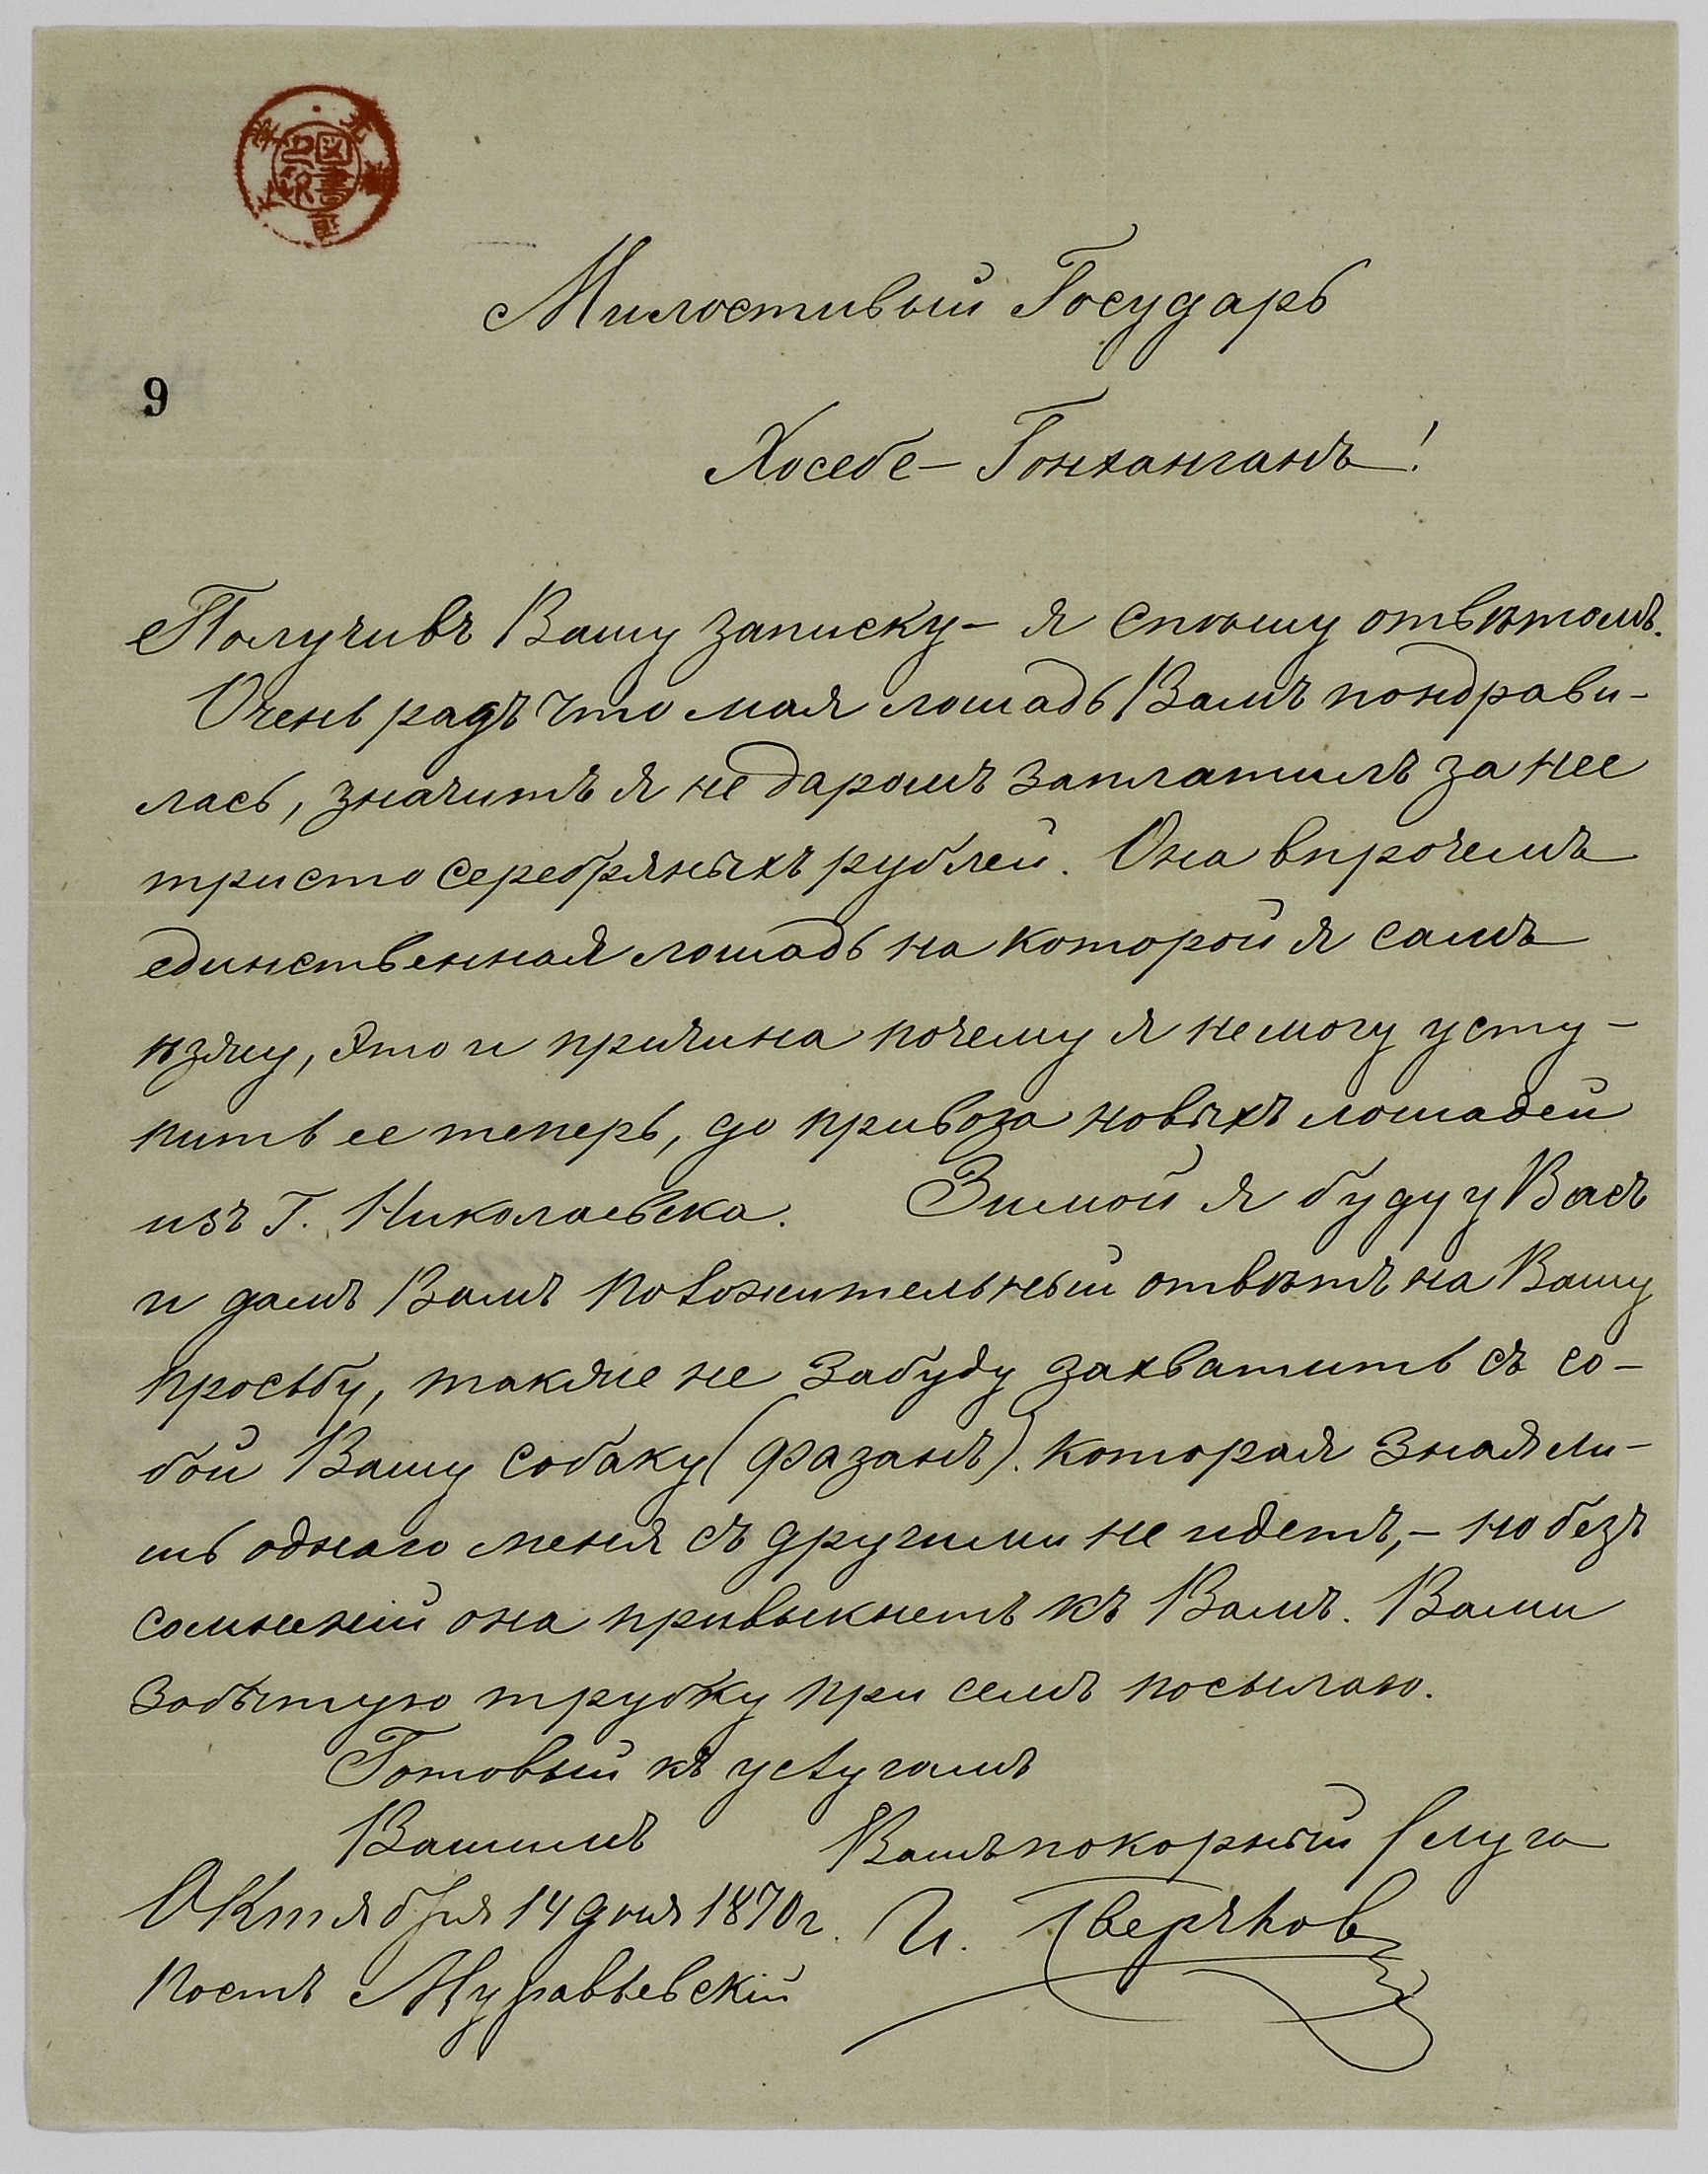 Милостивый Государь
9
Хосебе – Гонханганъ!
Получивъ Вашу записку – я спѣшу отвѣтомъ.
Очень радъ что мая лошадь Вамъ пондрави-
лась, значитъ я не даромъ заплатилъ за нее
тристо серебряныхъ рублей. Она впрочемъ
единственная лошадь на которой я самъ
ѣзжу, это и причина почему я не могу усту-
пить ее теперь, до привоза новыхъ лошадей
изъ Г. Николаевска. Зимой я буду у Васъ
и дамъ Вамъ положительный отвѣтъ на Вашу
просьбу, также не забуду захватить съ со-
бой Вашу собаку (Фазанъ). которая зная ли-
шь однаго меня съ другими не идетъ, – но безъ
сомненій она привыкнетъ къ Вамъ. Вами
забытую трубку при семъ посылаю.
Готовый къ услугамъ
Вашимъ Вашъ покорный слуга
Октября 14 дня 1870 г.
Постъ Муравьевскій